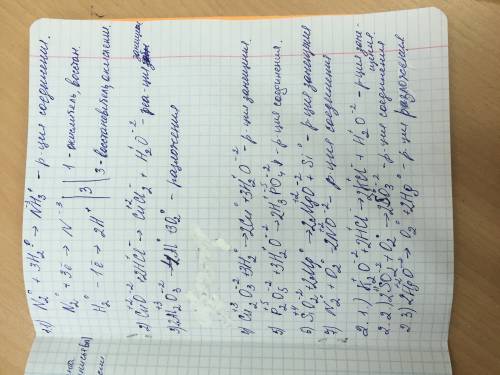 1) N₂⁰ + 3H₂⁰ → NH₃ - р-ция соединения.
N₂⁰ + 3ē → N⁻³ | 1 - окислитель, восстан.
H₂⁰ - 1ē → 2H⁺ | 3 | 3 - восстановитель, окислен.
2) CuO + 2HCl → CuCl₂ + H₂O⁻² - реа-ция
3) 2Al₂O₃ → 4Al⁰ 3O₂⁰ - разложения
4) O₃⁻² + 3H₂⁰ → 2 + 3H₂O⁻² - р-ция замещения.
5) P₂O₅ + 3H₂O⁻² → 2H₃PO₄ р-ция соединения.
6) SiO₂⁻² + 2Mg⁰ → 2MgO + Si⁰ - р-ция замещения
7) N₂⁰ + O₂⁰ → 2NO⁻² р-ция соединения
2. 1) O⁻² 2HCl → Cl + H₂O⁻² - р-ция заме-
щения.
2. 2) 2SO₂ + O₂⁰ → 2SO₃ - р-ция соединения
2. 3) 2HgO⁻² → O₂⁰ + 2Hg⁰ - р-ция разложения